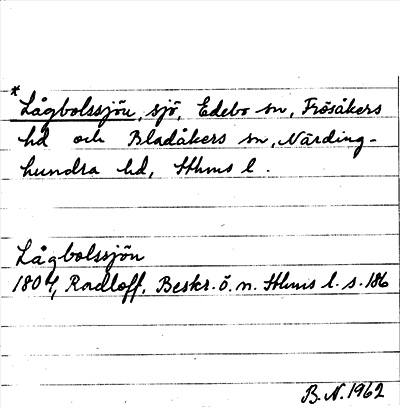 * Lågbolssjön, sjö, Edebo sn, Frösåkers
hd och Bladåkers sn, Närding-
hundra hd, Sthms l.
Lågbolssjön
1804, Radloff, Beskr. ö. n. Sthms l. s. 186
B.N. 1962